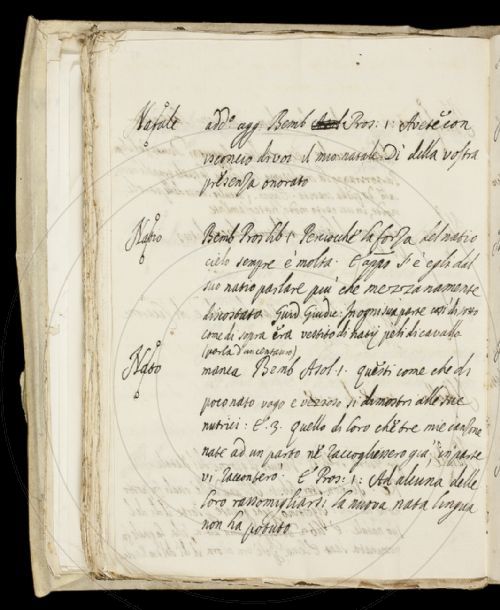 Natale add.º agg Bemb Pros: 1: Avete con
isconcio di voi il mio natale Dì della vostra
presenza onorato
Natio Bemb Pros lib 1 Perciocché la forza del natio
cielo sempre è molta. E appo s'è egli dal
suo natio parlare più che mezzanamente
discostato Guid Giudic: in ogni sua parte così di sotto
come di sopra era vestito di natij peli di cavallo
(parla d'un centauro)
Nato manca Bemb Asol. 1. questi come che di
poco nato vago e vezzoso si dimostri alle sue
nutrici: E 3. quello di loro che tre mie canzone
nate ad un parto né raccogliessero già, in parte
vi racconterò. E Pros: 1: Ad alcuna delle
loro rassomigliarsi la nuova nata lingua
non ha potuto